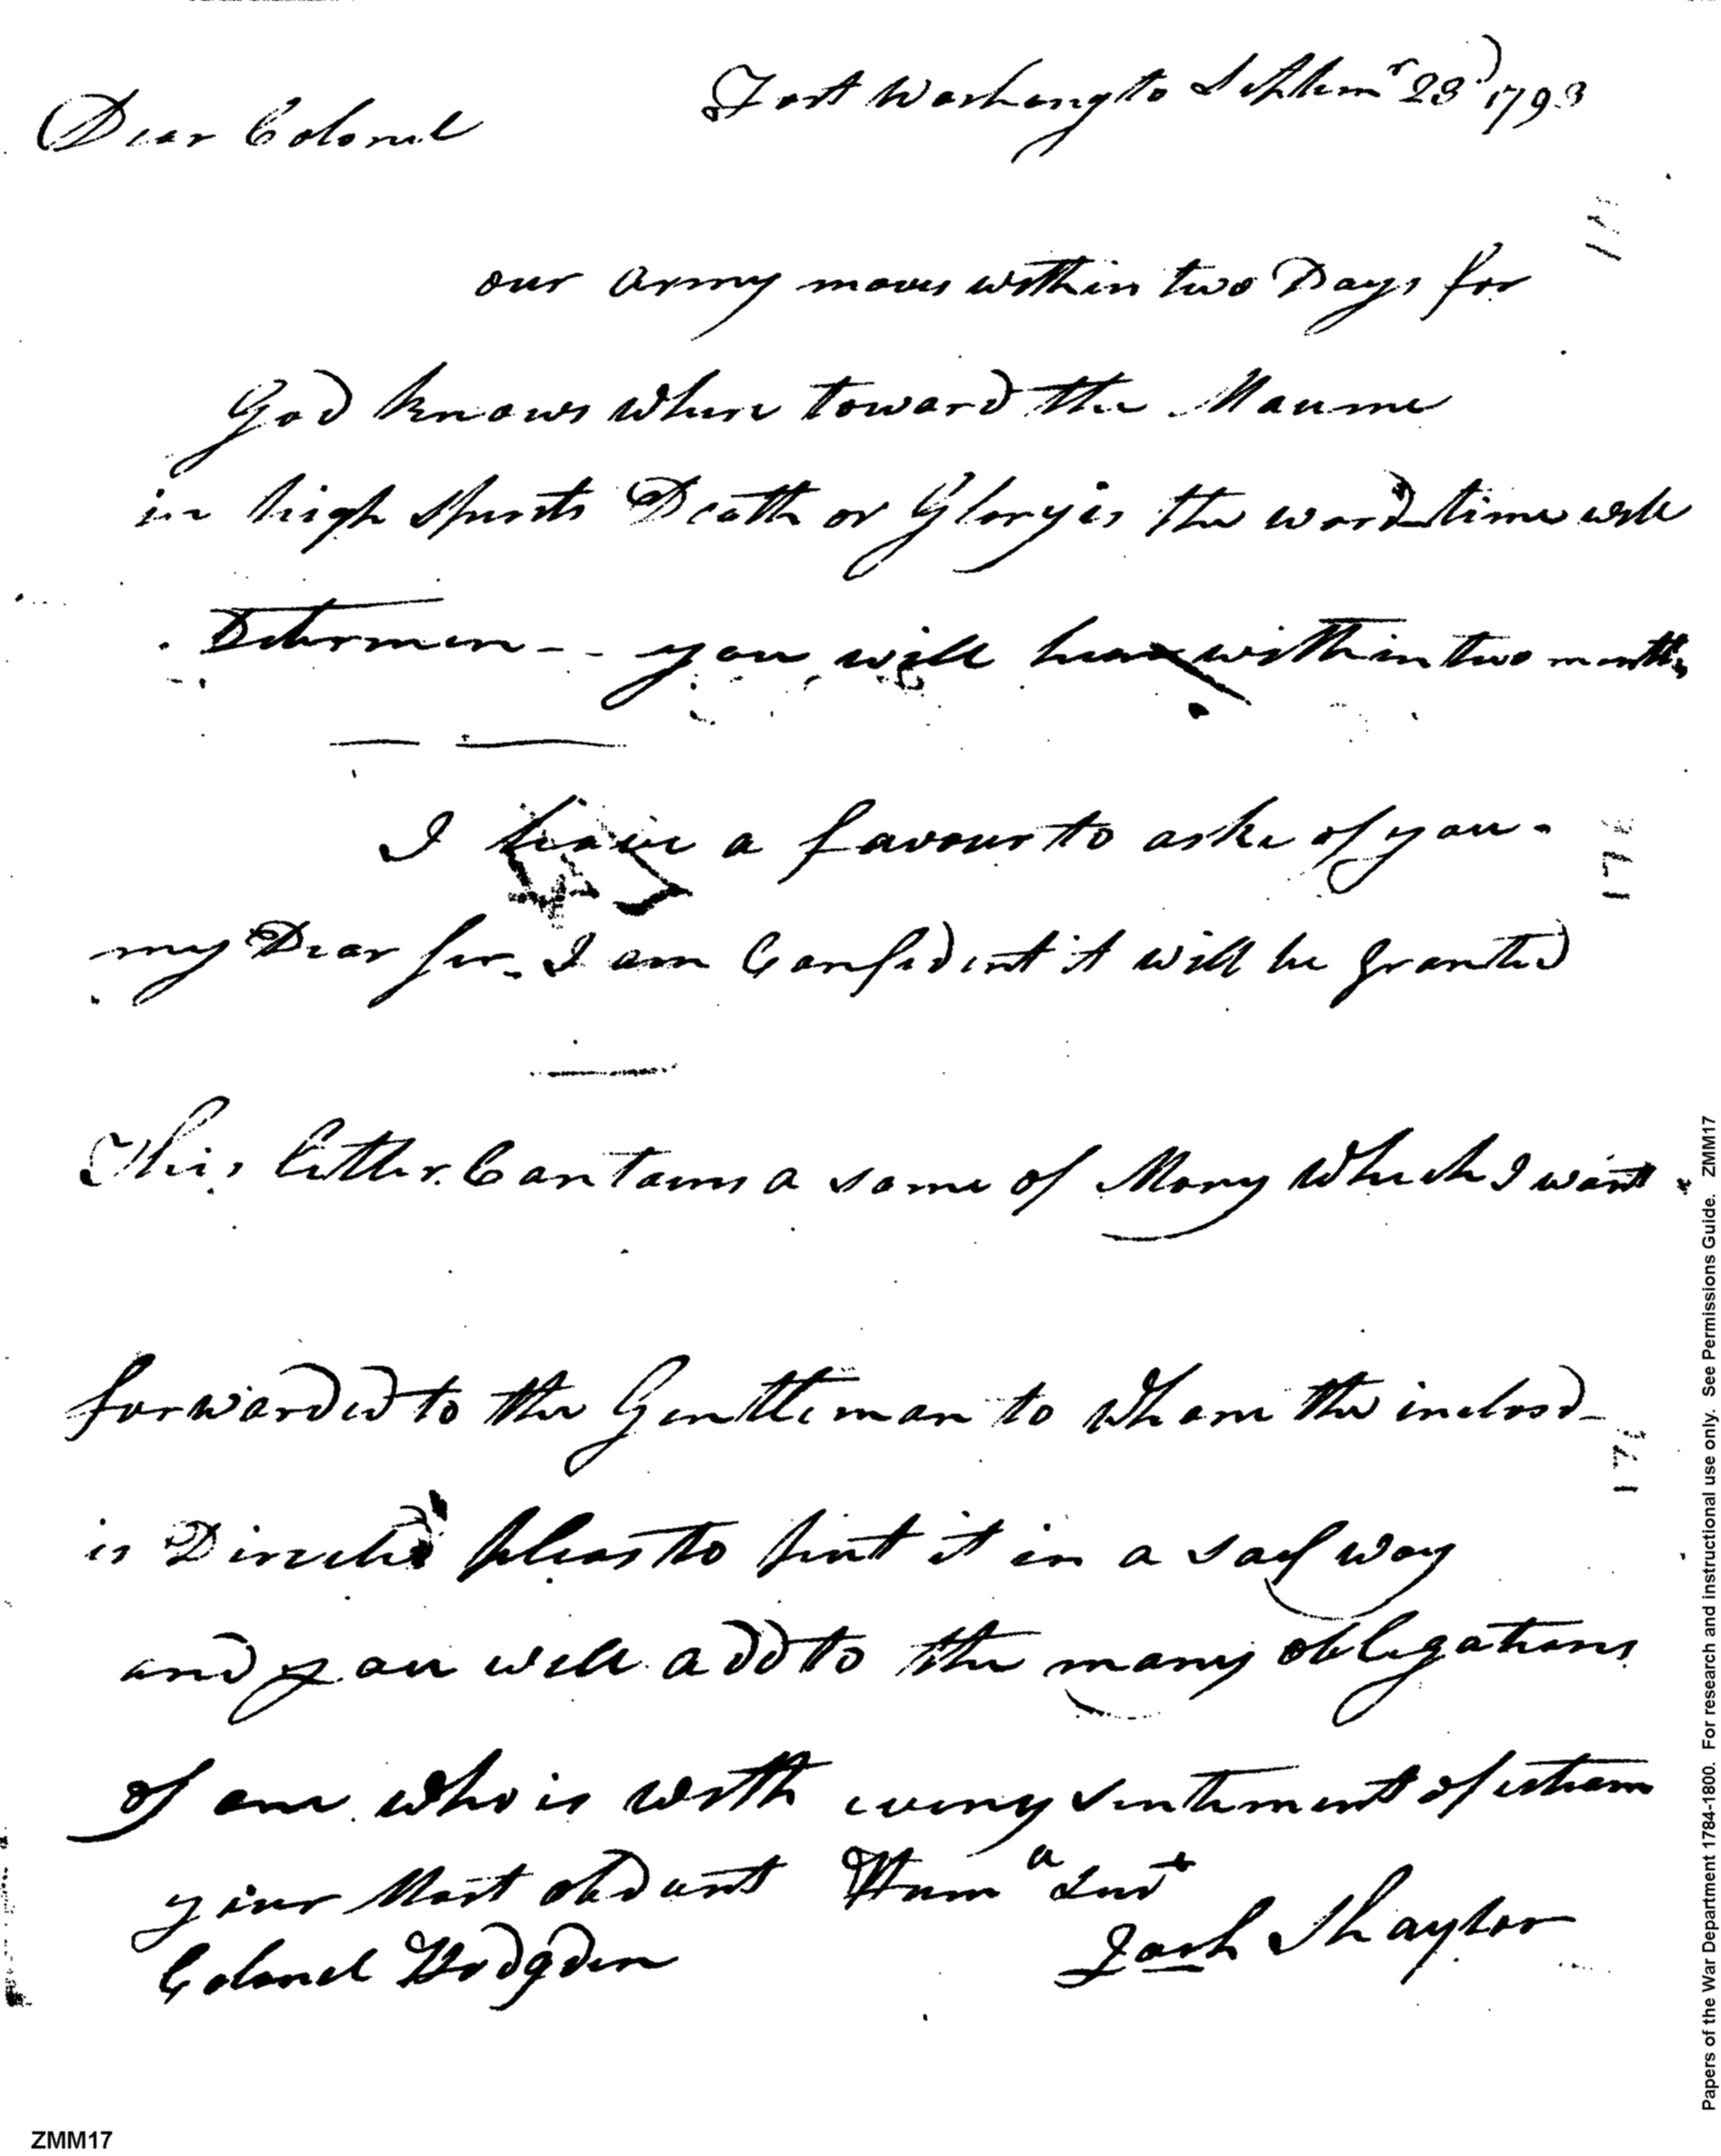 Fort Washengto Septem r 23d 1793
Dear Colonel
our army moves within two Days for
God knows where toward the Maume
in high spirits Death or Glory is the word time will
Determen - - you will hear within two months
I have a favour to aske of you.
my Dear Sir. I am Confident it will be granted
This letter Contains a some of Mony which I want
forwarded to the Gentleman to whom the inclosd
is Directed pleas to put it in a saf way
and you will add to the many obligations
of one who is with every sentiment of esteam
your Most obdiant Hum a Sert
Colonel Hodgden
Josh Shaylor
Papers of the War Department 1784-1800. For research and instructional use only. See Permissions Guide. ZMM17
ZMM17